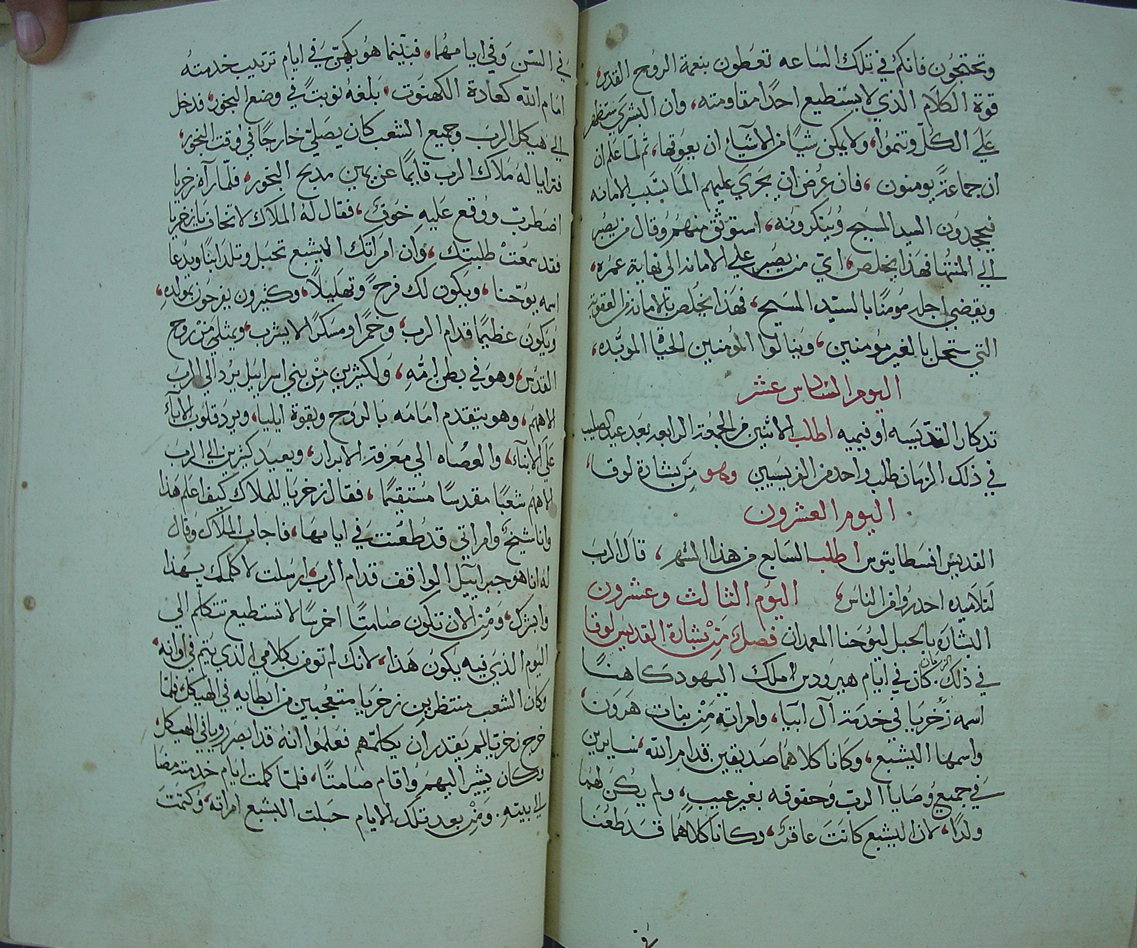 وتحتجون فانكم في تلك الساعه تعطون بنعمة الروح القدس
قوة الكلام الذي لا يستطيع احدًا مقاومته، وان البشرى ستظهر
على الكل وتنموا، ولا يمكن شيًا من الاشيآء ان يعوقها، ثم لما علم ان
ان جماعةً يومنون، فان عرض ان يجري عليهم الما بسبب الامانه
فيجحدون السيد المسيح وينكرونه، استوثق منهم وقال من يصبر
الى المنتها فهذا يخلص، اي من يصبر على الامانه الى نهاية عمره،
ويقضي اجله مومنًا بالسيد المسيح، فهذا يخلص بالامانه من العقوبة
التي ستحل بالغير مومنين، وينالوا المومنين الحياة الموبده،
اليوم السادس عشر
تذكار القديسه اوفيميه اطلب الاثنين من الجمعة الرابعه بعد عيد الصليب
في ذلك الزمان طلب واحد من الفريسيين وهو من بشارة لوقا،
اليوم العشرون
القديس افسطاتيوس اطلب السابع من هذا الشهر، قال الرب
لتلاميذه احذروا من الناس، اليوم الثالث وعشرون
البشاره بالحبل ليوحنا المعمدان فصل من بشارة القديس لوقا
في ذلك الزمان كان في ايام هيرودس ملك اليهود كاهنًا
اسمه زخريا في خدمة آل ابيا، وامراته من بنات هرون
واسمها اليشبع، وكانا كلاهما صديقين قدام الله، سايرين
في جميع وصايا الرب وحقوقه بغير عيب، ولم يكن لهما
ولدًا، لان اليشبع كانت عاقر، وكانا كلاهما قد طعنا
في السن وفي ايامهما، فبينما هو يكهن في ايام ترتيب خدمته
امام الله كعادة الكهنوت، بلغه نوبةً في وضع البخور، فدخل
الى هيكل الرب وجميع الشعب كان يصلي خارجًا في وقت البخور،
فترايا له ملاك الرب قايمًا عن يمين مذبح البخور، فلما رآه زخريا
اضطرب ووقع عليه خوف، فقال له الملاك لا تخاف يا زخريا
فقد سمعت طلبتك، وان امراتك اليشبع تحبل وتلد ابنًا ويدعا
اسمه يوحنا، ويكون لك فرح وتهليلًا، وكثيرون يفرحون بمولده،
ويكون عظيمًا قدام الرب، وخمرًا ومسكرًا لا يشرب، ويمتلي من روح
القدس، وهو في بطن امه، ولكثيرين من بني اسراييل يرد الى الرب
الاههم، وهو يتقدم امامه بالروح وبقوة ايليا، ويرد قلوب الابآء
على الابنآء، والعصاه الى معرفة الابرار، ويعيد كثيرين الى الرب
الاههم شعبًا مقدسًا مستقيمًا، فقال زخريا للملاك كيف اعلم هذا
وانا شيخ وامراتي قد طعنت في ايامها، فاجاب الملاك وقال
له انا هو جبراييل الواقف قدام الرب، ارسلت لاكلمك بهذا
وابشرك، ومن الان تكون صامتًا اخرسًا لا تستطيع تتكلم الى
اليوم الذي فيه يكون هذا، لانك لم تومن بكلامي الذي يتم في اوانه،
وكان الشعب منتظرين زخريا متعجبين من ابطايه في الهيكل فلما
خرج زخريا لم يقدر ان يكلمهم فعلموا انه قد ابصر رويا في الهيكل،
وكان يشير اليهم واقام صامتًا، فلما كملت ايام خدمته مضا
الى بيته. ومن بعد تلك الايام حبلت اليشبع امراته، وكتمت